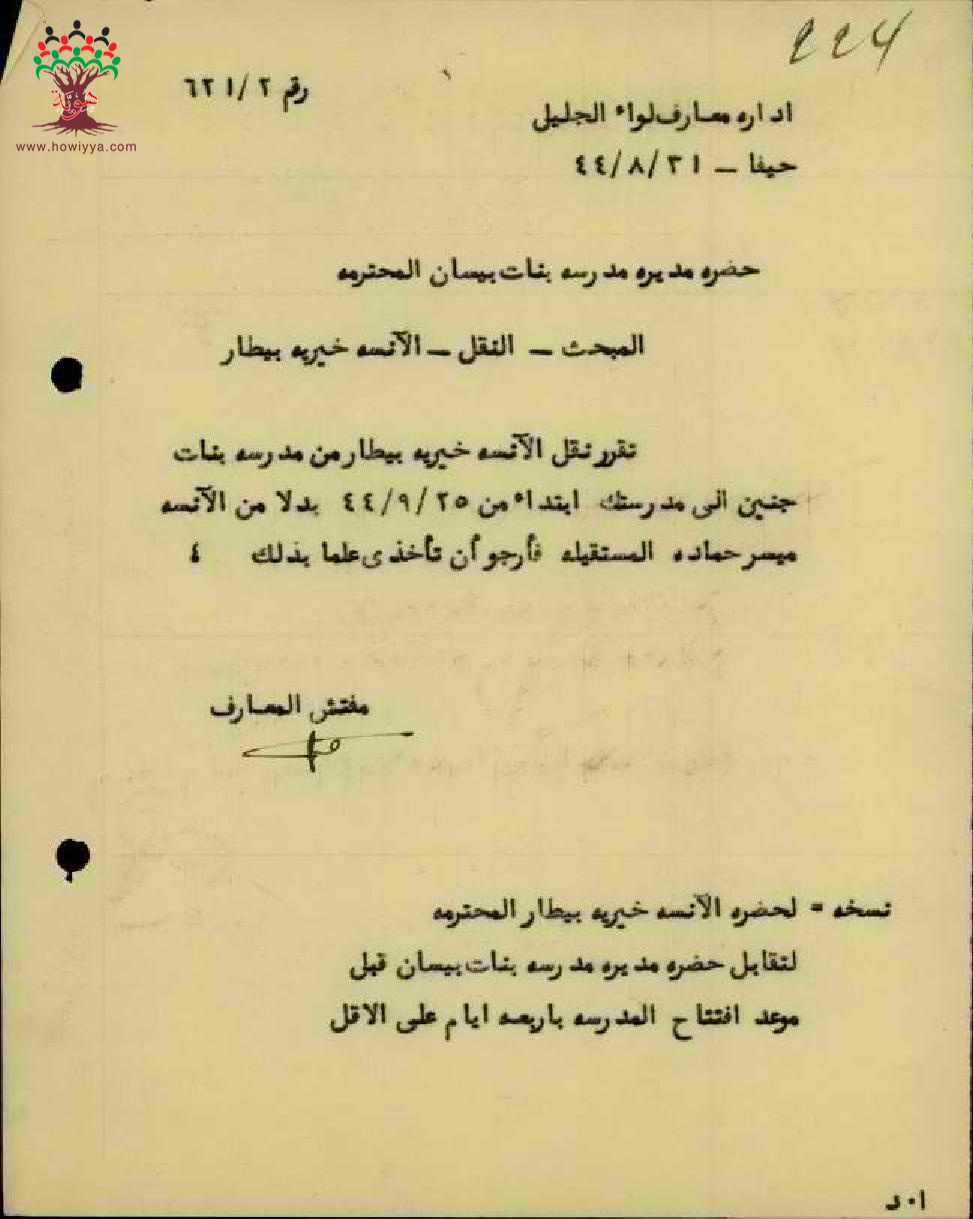 224
رقم ٢/ ٦٢١
اداره معارف لواء الجليل
حيفا – ٣١/٨/٤٤
حضره مديره مدرسه بنات بيسان المحترمه
المبحث – النقل – الآنسه خيريه بيطار
تقرر نقل الآنسه خيريه بيطار من مدرسه بنات
جنين الى مدرستك ابتداء من ٢٥/٩/٤٤ بدلا من الآنسه
ميسر حماده المستقيله فأرجو أن تأخذى علما بذلك ؛
مفتش المعارف
نسخه = لحضره الآنسه خيريه بيطار المحترمه
لتقابل حضره مديره مدرسه بنات بيسان قبل
موعد افتتاح المدرسه باربعه ايام على الاقل
ا٠د
هوية
www.howiyya.com